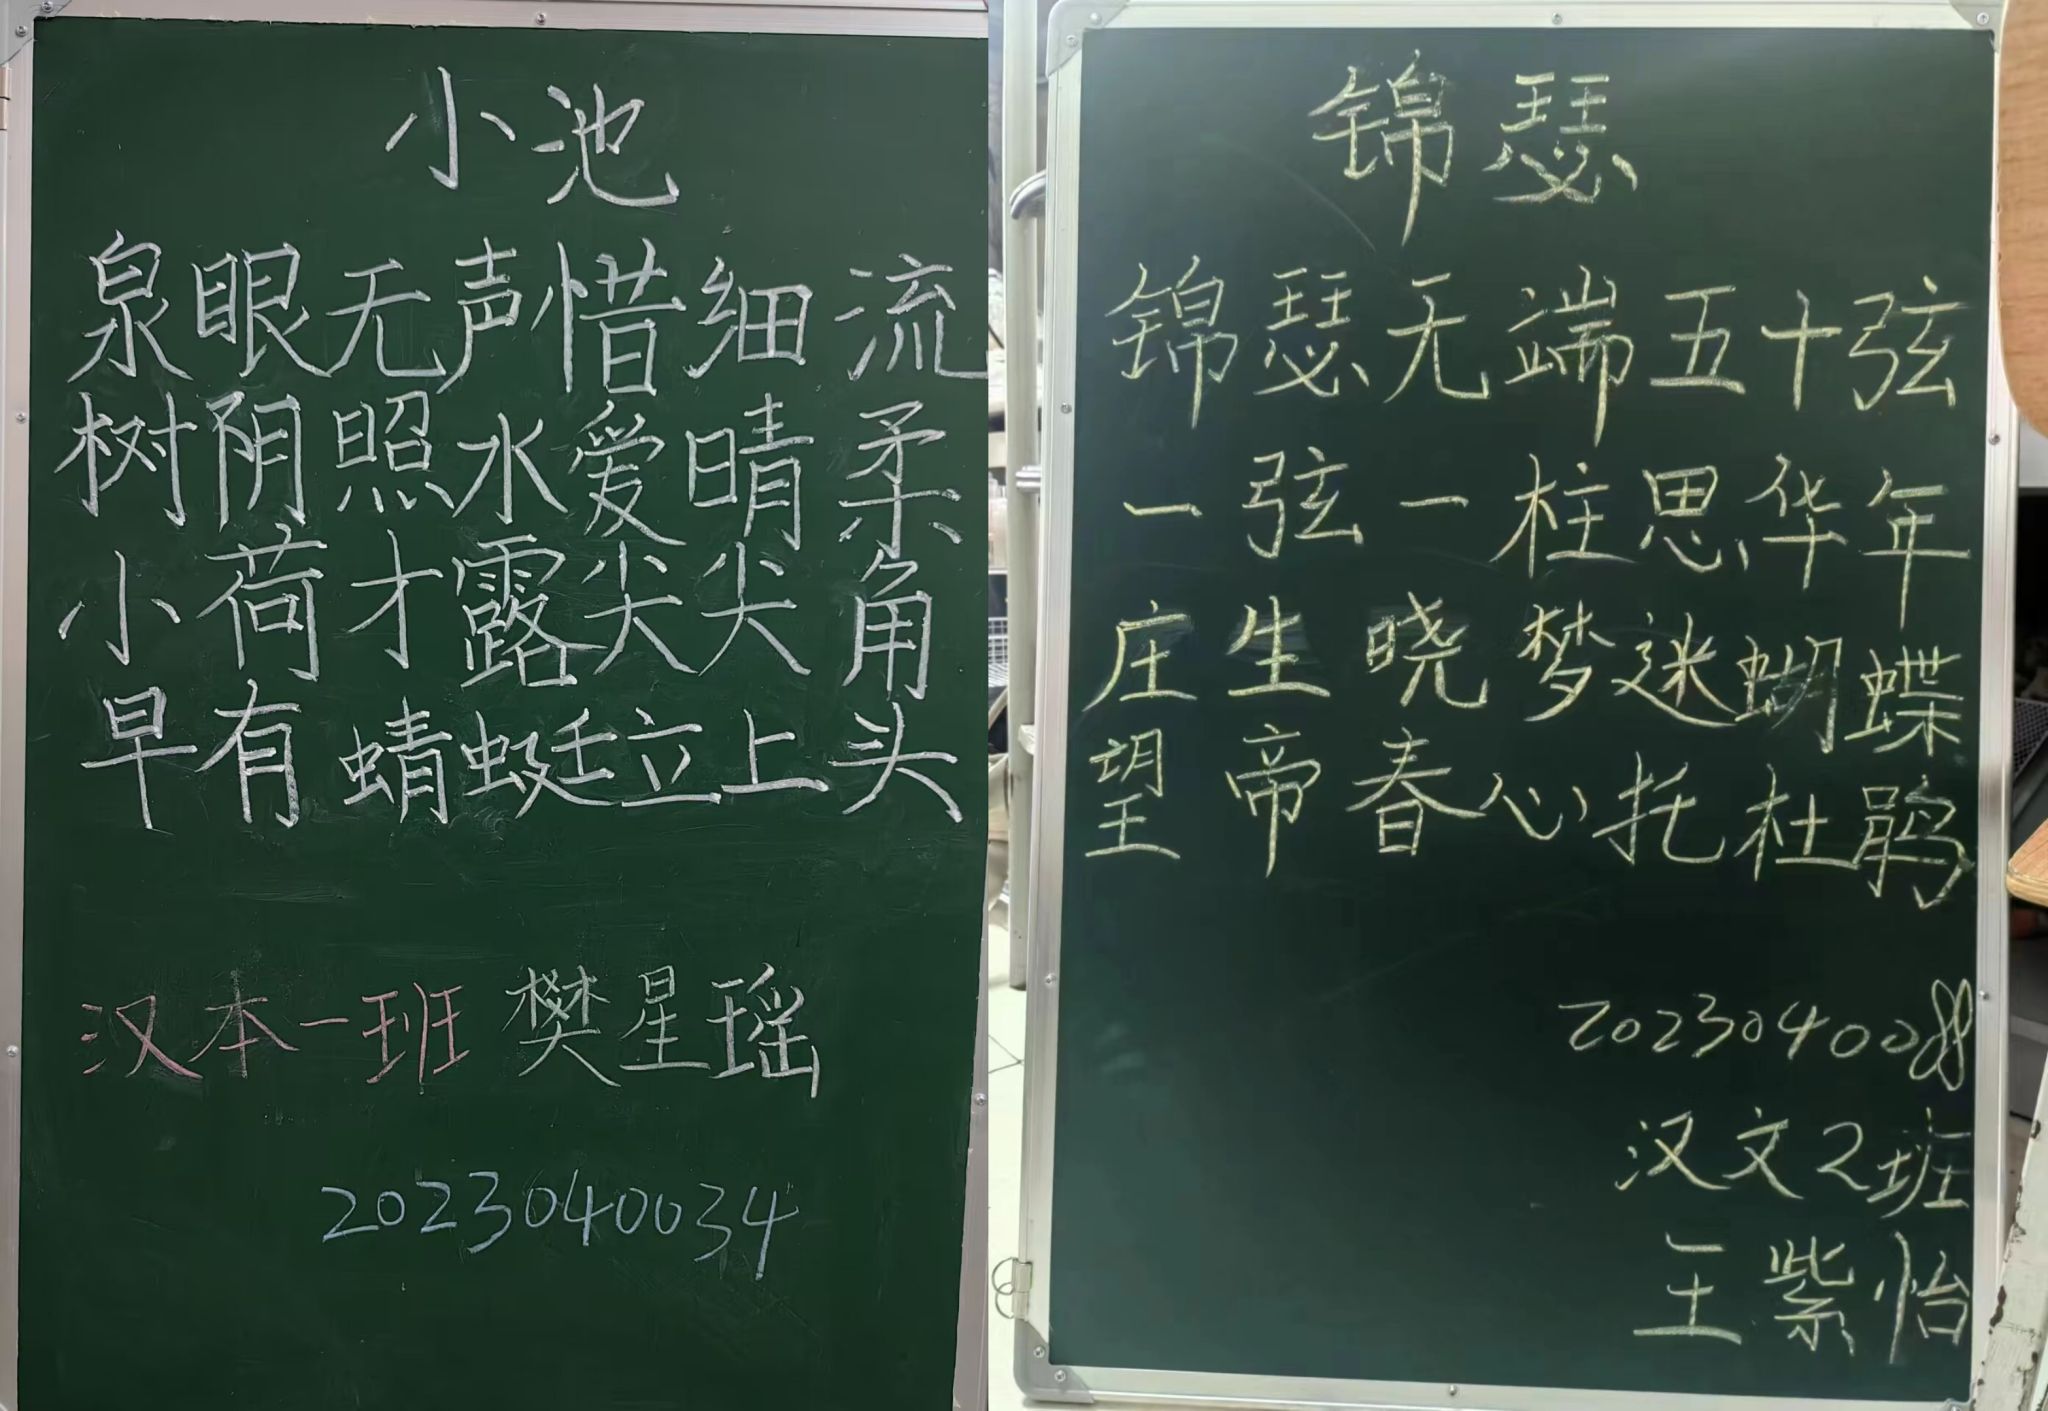 小池
泉眼无声惜细流
树阴照水爱晴柔
小荷才露尖尖角
早有蜻蜓立上头
汉本一班 樊星瑶
2023040034
锦瑟
锦瑟无端五十弦
一弦一柱思华年
庄生晓梦迷蝴蝶
望帝春心托杜鹃
2023040088
汉文2班
王紫怡